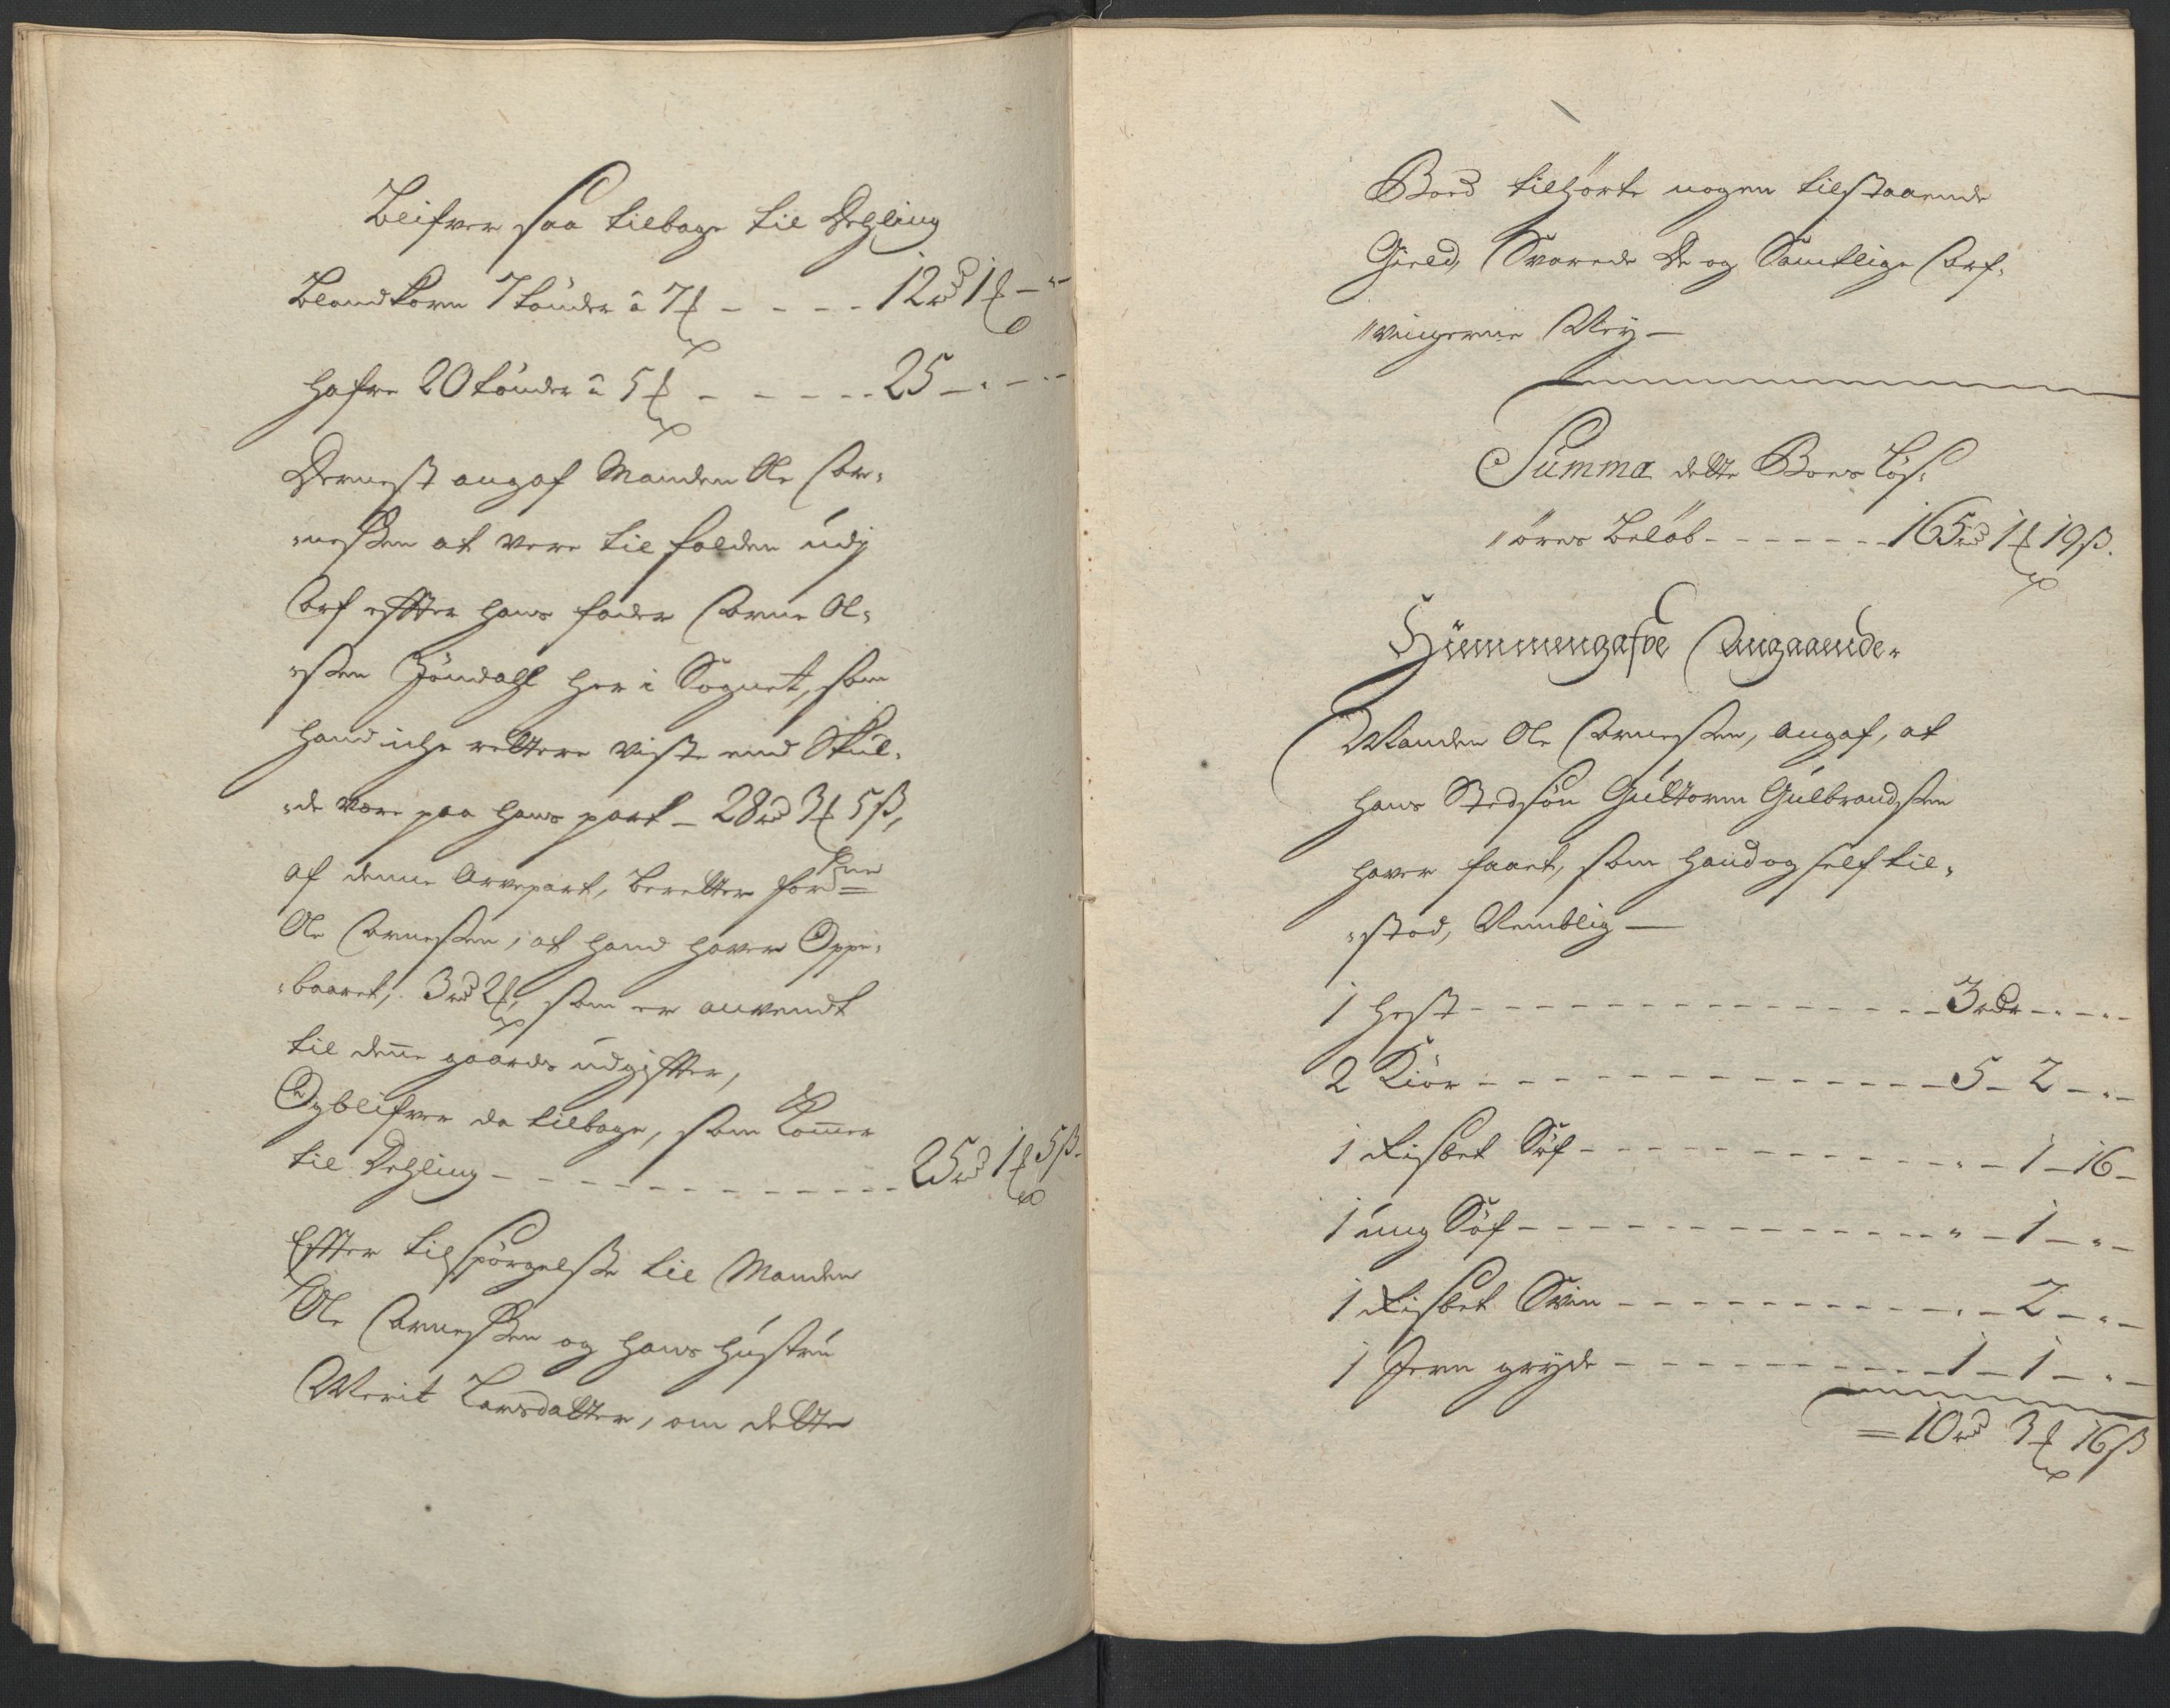 Blifver saa tilbage til Dehling
Blandkorn 7 tönder â 7 ƒ - - - - 12 rd 1 ƒ - "
Hafre 20 tönder â 5 ƒ - - - - - 25 - " - "
Dernest angaf Manden Ole Ar„
„nesßen at vere tilfalden udj
Arf effter hans fader Arne Ol„
„sßen Jöndahl her i Sognet, som
hand iche rettere viste end Skul„
„de være paa hans part - 28 rd 3 ƒ 5 ß,
af denne Arvepart, beretter forbne
Ole Arnesßen, at hand haver Oppe„
„baaret, 3 rd 2 ƒ, som er anvendt
til denne gaards udgiffter,
Og blifver da tilbage, som kommer
til Dehling - - - - - - - - - - 25 rd 1 ƒ 5 ß.
Effter tilspörgelsße til Manden
Ole Arnesßen og hans hustru
Marit Larsdatter, om dette
Boed tilhörte nogen tilstaaende
Gield, Svarede De og Samtlige Arf„
„vingerne Ney —
Summa dette Boes Lös„
„öres Belöb - - - - - - - 165 rd 1 ƒ 19 ß.
Hiemmengafve Angaaende„
Manden Ole Arnesßen, angaf, at
hans Stedsön Guttorm Gulbrandsßen
haver faaet, som hand og self til„
„stod, Nemblig —
1 Hest - - - - - - - - - - 3 rdr - " - "
2 Kiör - - - - - - - - - - 5 - 2 - " -
1 Risbet Söf - - - - - - - - " - 1 - 16 -
1 ung Söf - - - - - - - - - " - 1 - " -
1 Risbet Svin - - - - - - - - " - 2 - " -
1 Jern gryde - - - - - - - - 1 - 1 - " -
= 10 rd 3 ƒ 16 ß